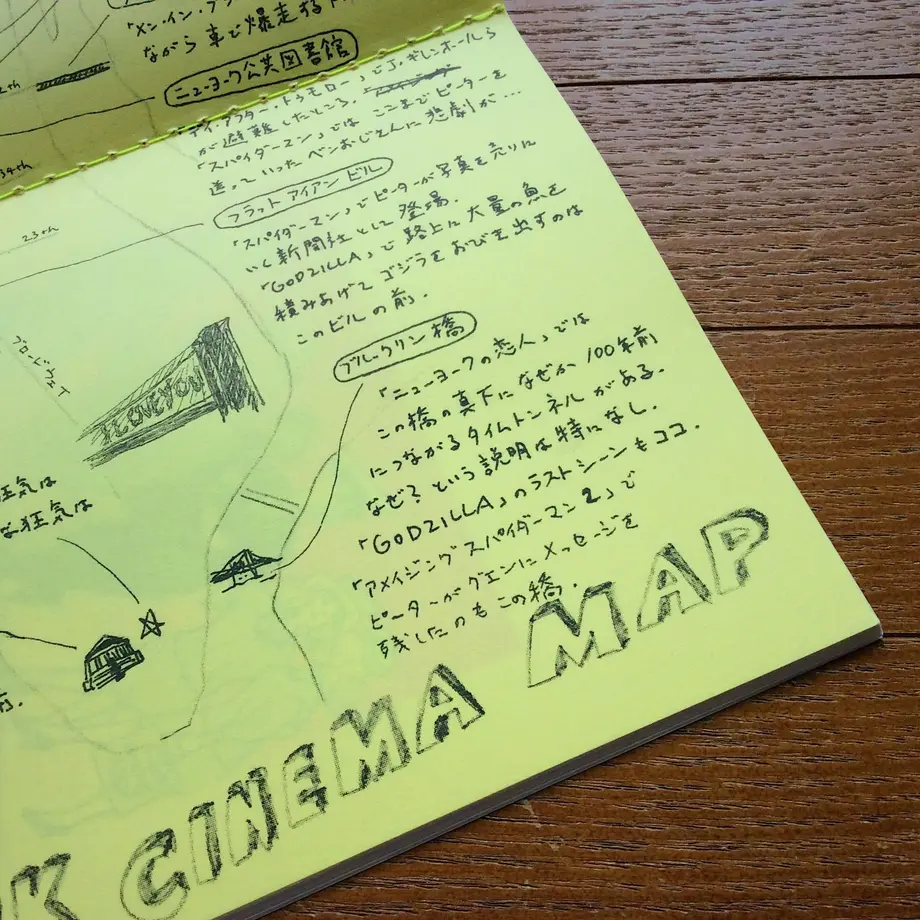 「メン・イン・ブラ
ながら 車で爆走する
ニューヨーク公共図書館
デイ・アフター・トゥモロー」でJ・ギレンホールら
が避難したところ.
「スパイダーマン」では ここまでピーターを
送っていったベンおじさんに悲劇が…
34th
フラット アイアン ビル
23th
「スパイダーマン」でピーターが写真を売りに
いく新聞社として登場.
「GODZILLA」で路上に大量の魚を
積みあげて ゴジラをおびき出すのは
このビルの前.
ブロードウェイ
ブルックリン橋
「ニューヨークの恋人」では
この橋の真下になぜか100年前
につながるタイムトンネルがある.
なぜ?という説明は特になし.
「GODZILLA」のラストシーンもココ.
「アメイジング スパイダーマン2」で
ピーターがグエンにメッセージを
残したのもこの橋.
狂気は
な狂気は
前.
K CINEMA MAP